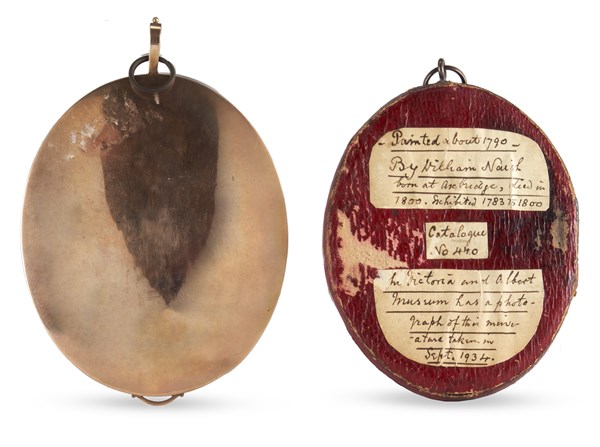 - Painted about 1790 -
By William Naish
born at Axbridge, died in
1800. Exhibited 1783 to 1800
Catalogue
No 440
The Victoria and Albert
Museum has a photo-
graph of this minia-
ature taken in
Sept. 1934.